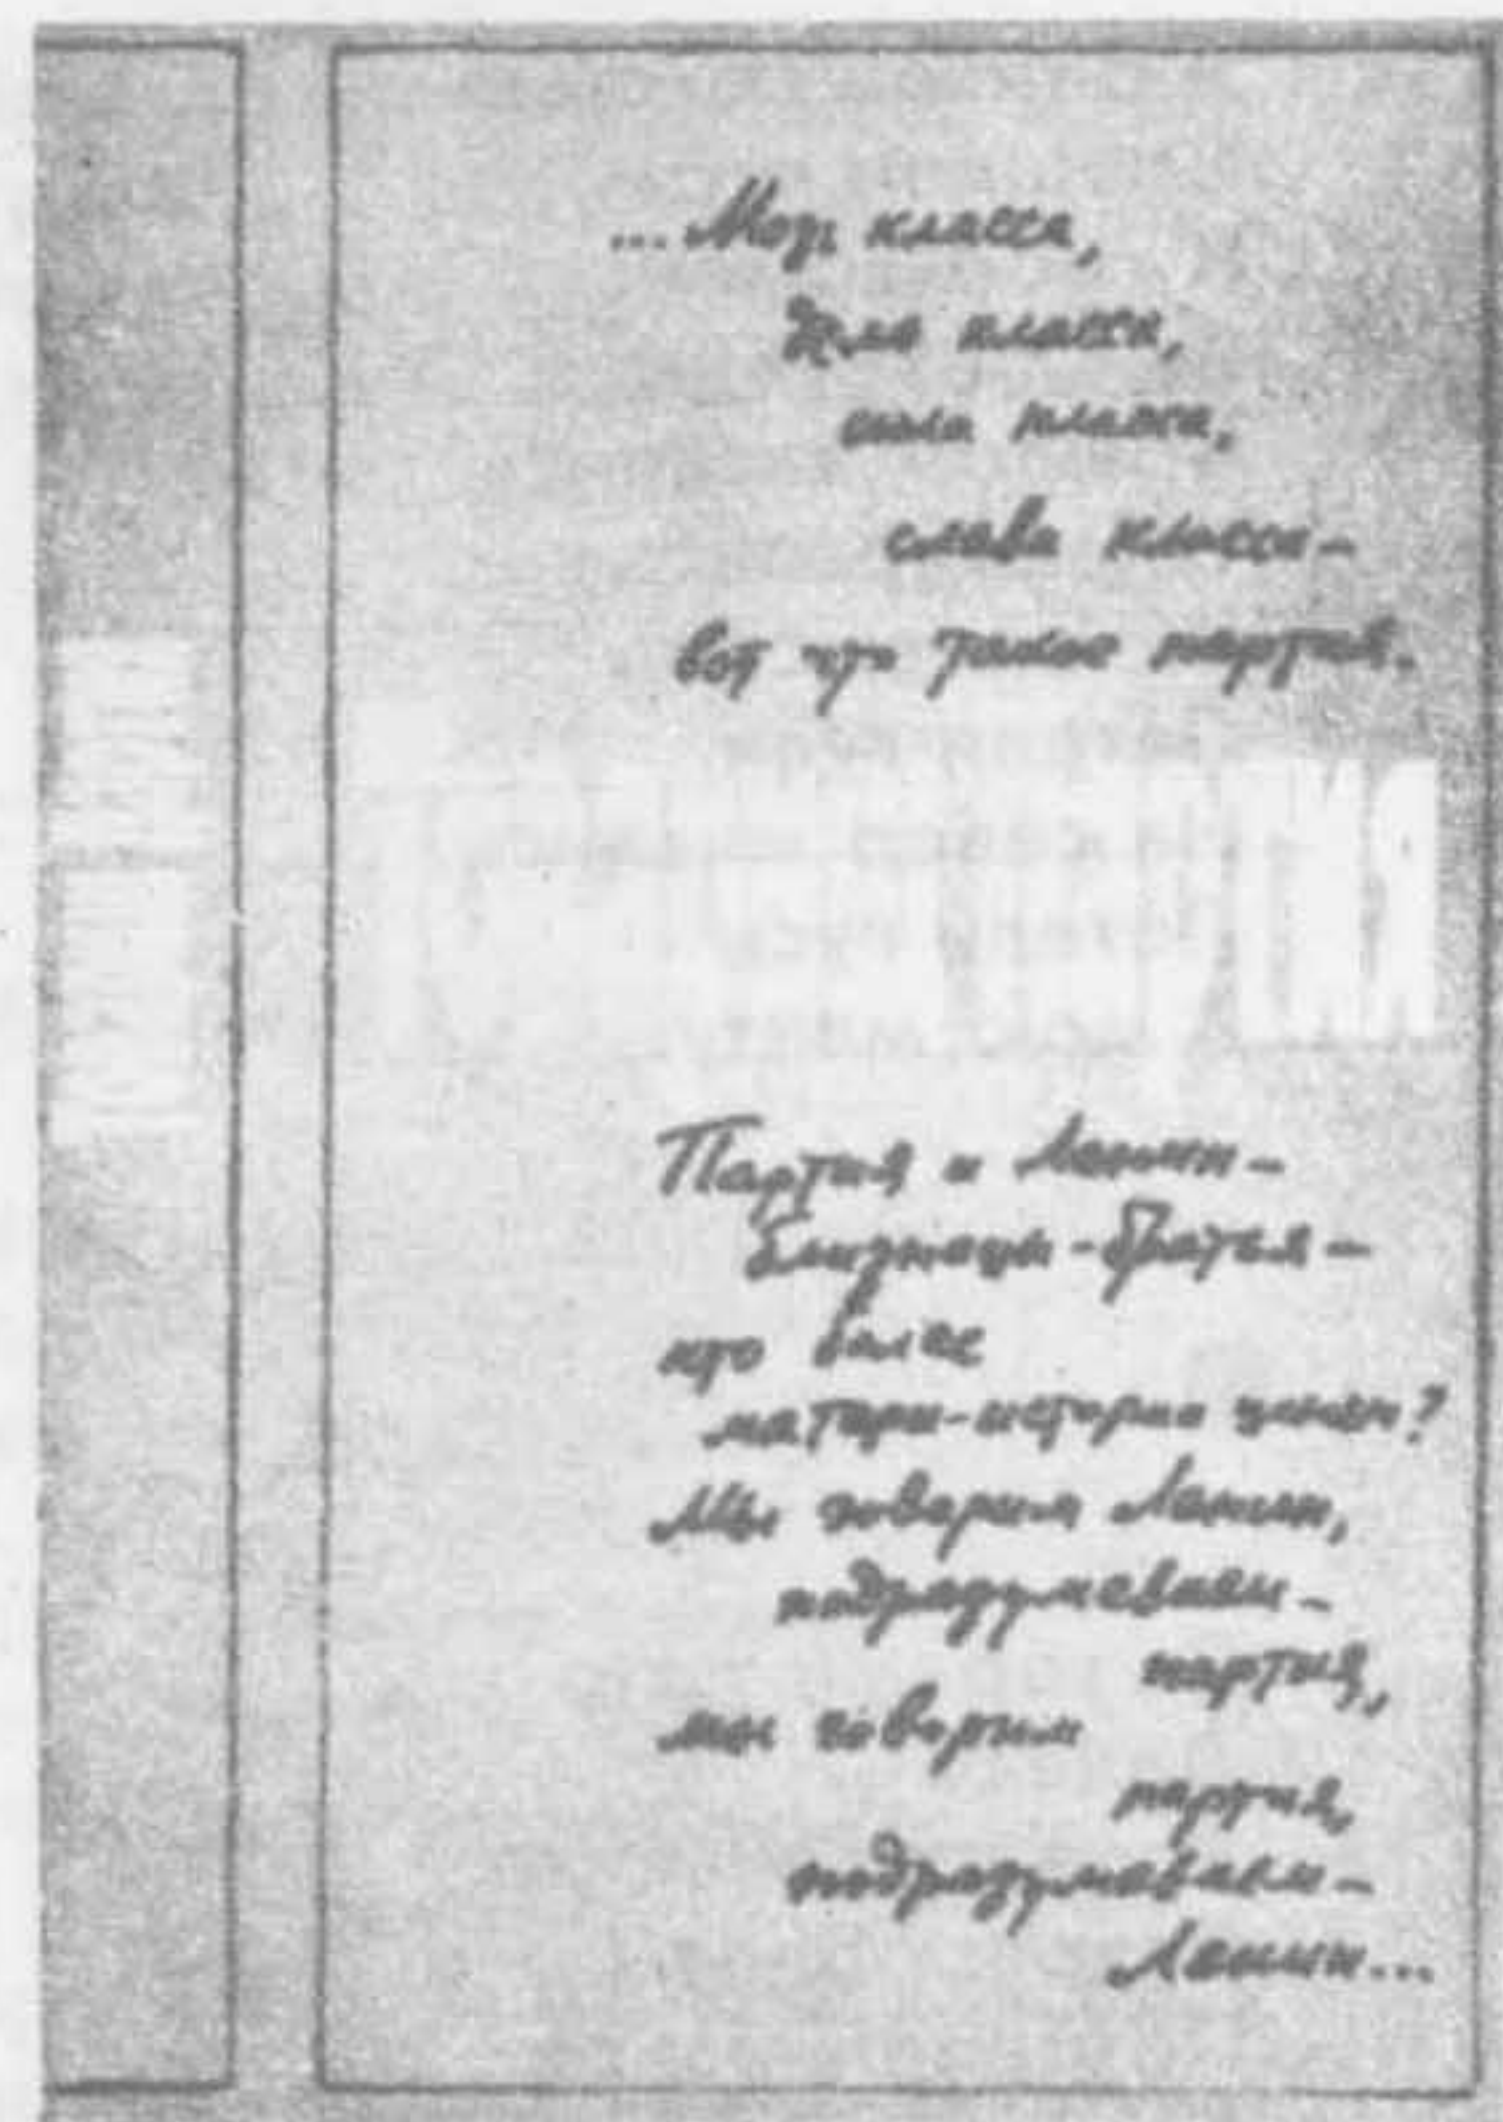 ...Мозг класса,
дело класса,
сила класса,
слава класса –
вот что такое партия.
Партия и Ленин –
близнецы-братья –
кто более
матери-истории ценен?
Мы говорим Ленин,
подразумеваем –
партия,
мы говорим
партия,
подразумеваем –
Ленин...